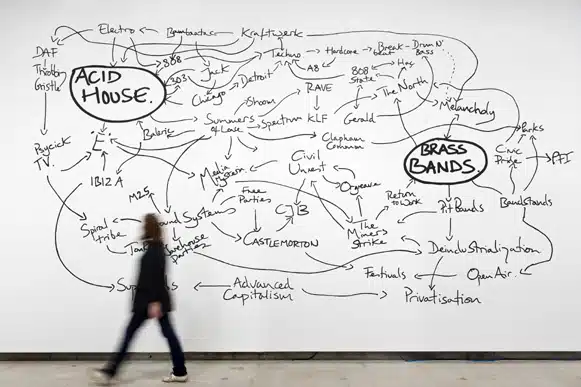 Electro
Bambaataa
Kraftwerk
DAF
Throbbing
Gristle
808
303
Jack
Chicago
Detroit
Techno
Hardcore
Break-
beat
Drum N'
Bass
A8
808
State
Hac
The North
Melancholy
ACID
HOUSE.
Shoom
RAVE
Summers
of Love
Spectrum
KLF
Gerald
Clapham
Common
Psychick
TV.
E
Balearic
IBIZA
Media
Hysteria
Civil
Unrest
Orgreave
BRASS
BANDS.
Parks
Civic
Pride
PFI
M25
Free
Parties
CJB
Return
to Work
Pit Bands
Bandstands
Spiral
tribe
Sound Systems
Warehouse
parties
CASTLEMORTON
The
Miners
Strike
Deindustrialization
Festivals
Open Air.
Advanced
Capitalism
Privatisation